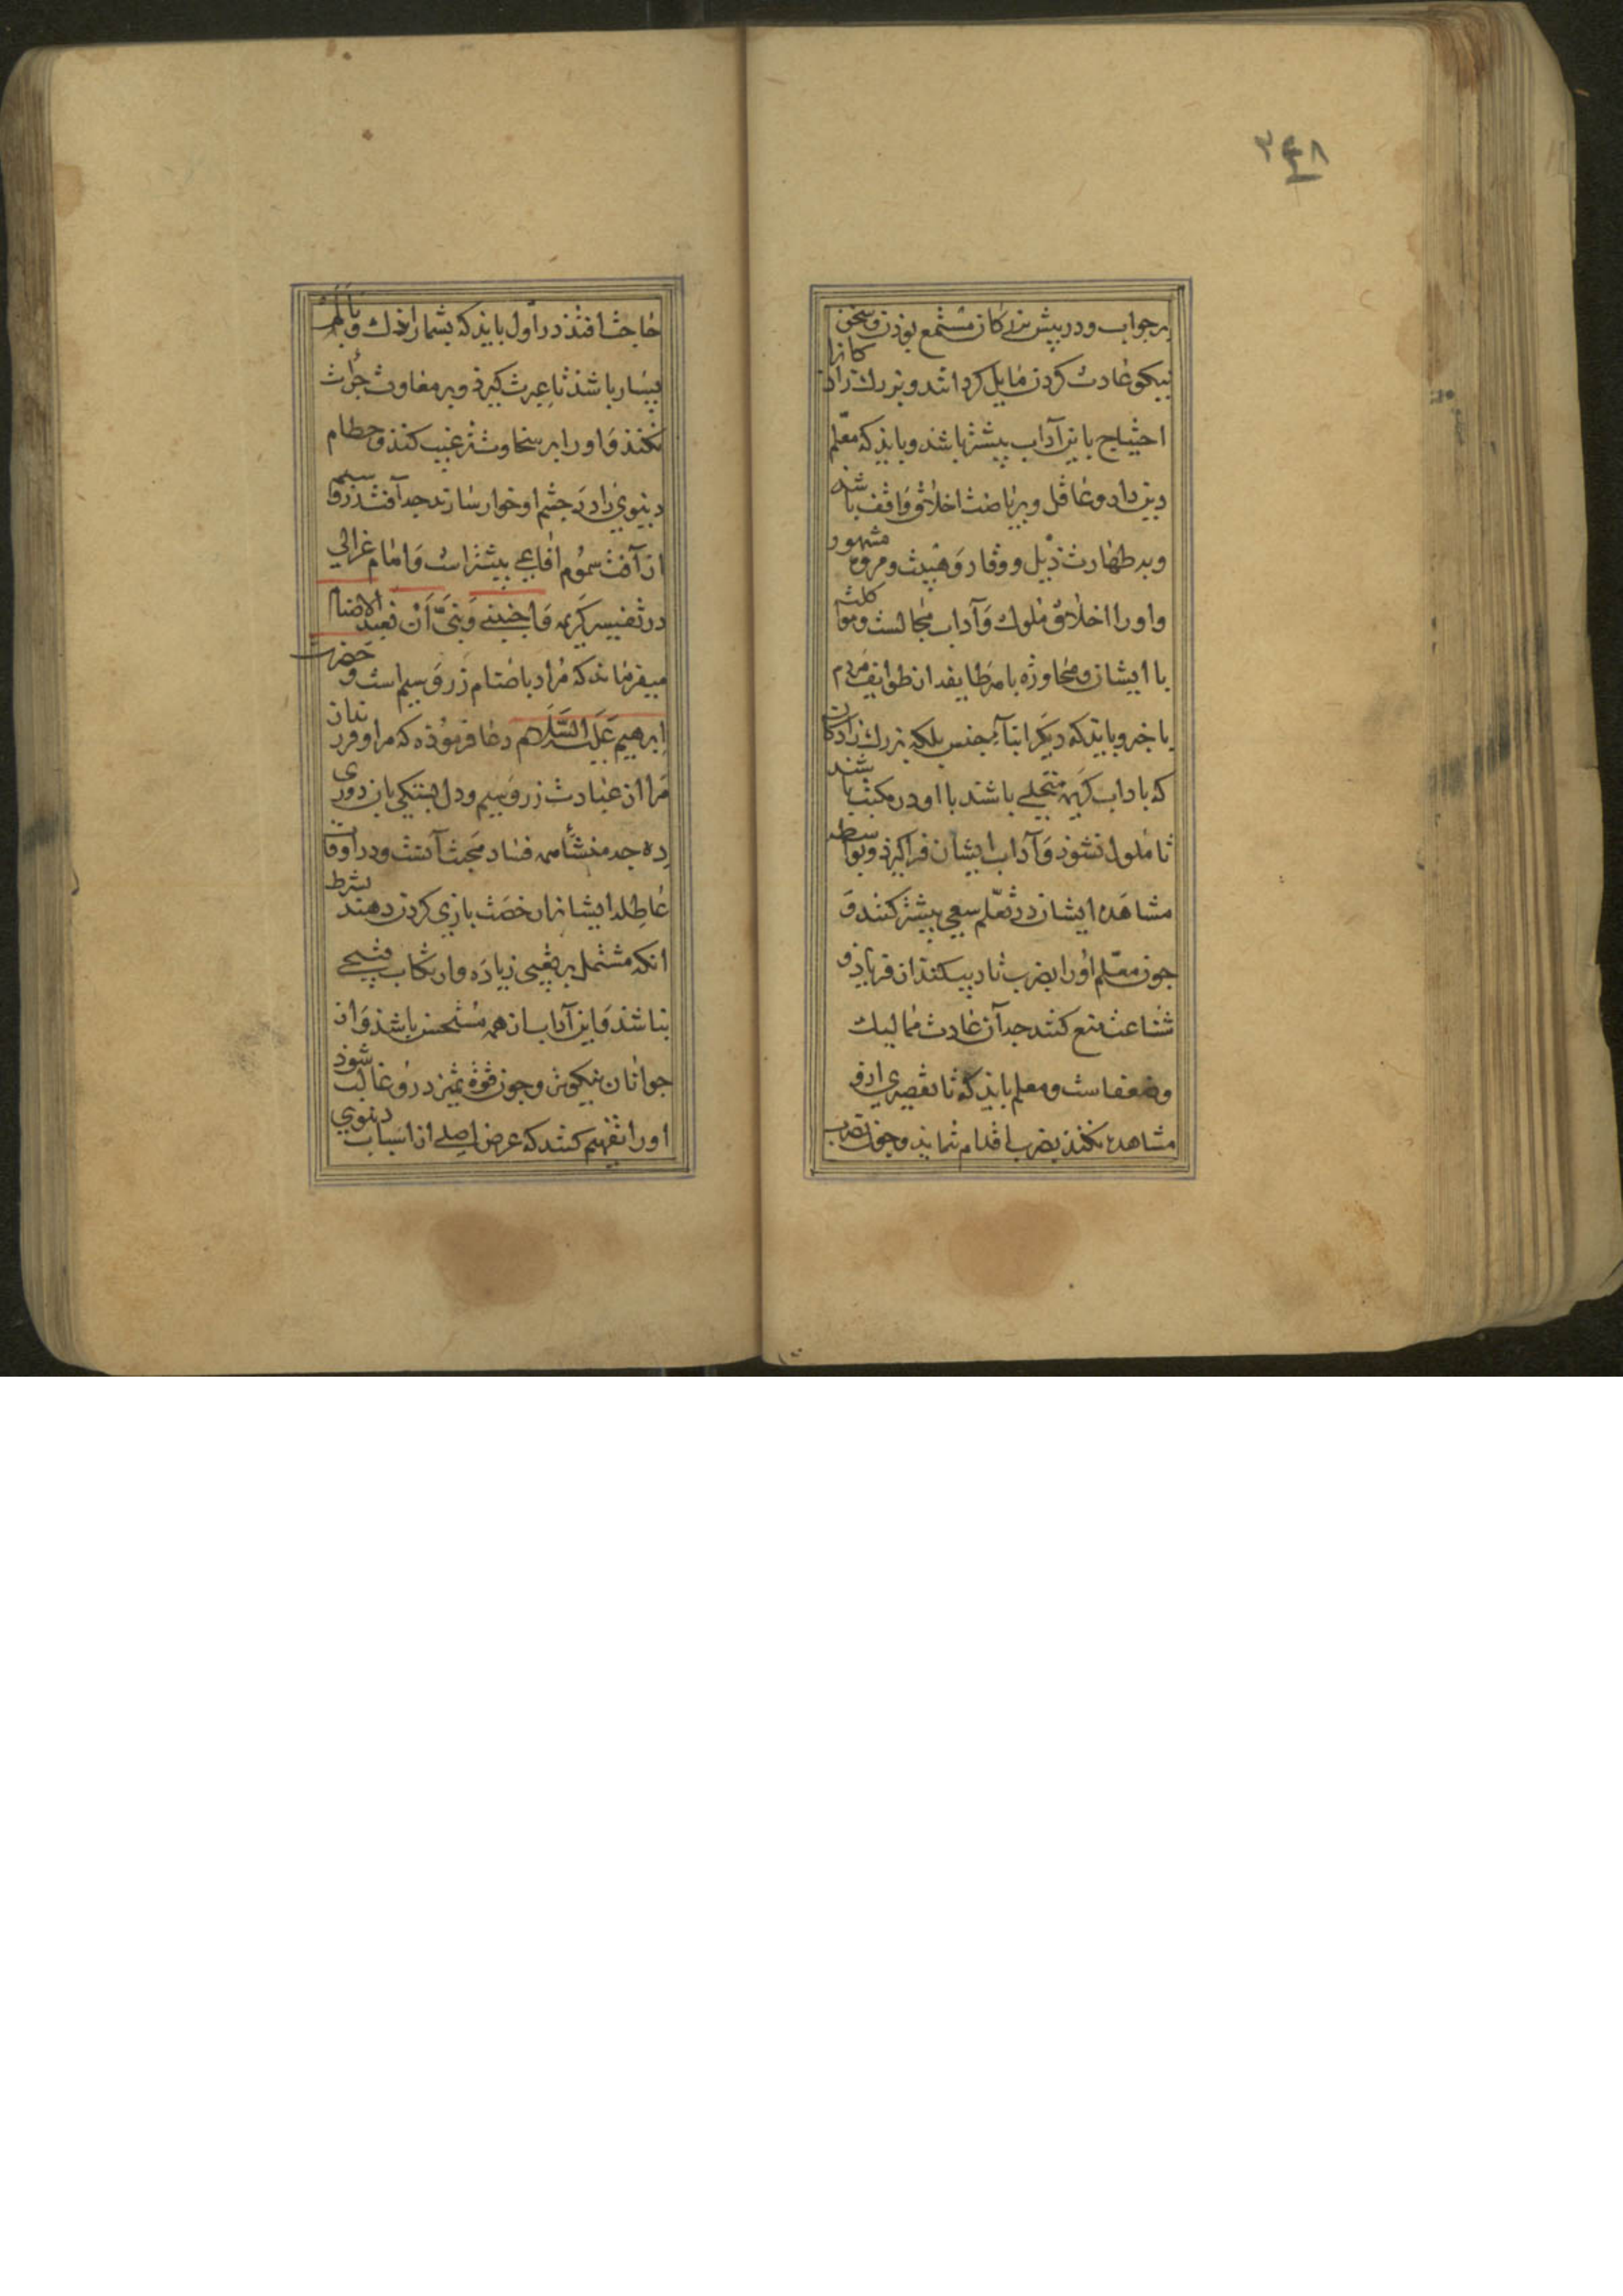 ۳۴۸
بر جواب و در پیش بزرکان مستمع بوذن و سخن
نیکو عادت کردن مایل کردانند و بزرك زادکانرا
احتیاج باین آداب بیشتر باشد و بایذ که معلم
دین دار و عاقل و بر ریاضت اخلاق واقف باشد
و بر طهارت ذیل و وقار و هیبت و مروه مشهور
و او را اخلاق ملوك و آداب مجالست و مواکلت
با ایشان و محاوره با هر طایفه از طوایف مردم
با خبر و بایذ که دیکر ابنآء جنس بلکه بزرك زادکان
که باداب کریمه متحلی باشند با او در مکتب باشند
تا ملول نشوذ و آداب ایشان فراکیرذ و بواسطه
مشاهده ایشان در تعلم سعی بیشتر کنند و
جون معلم او را بضرب تادیب کنذ از فریاد و
شفاعت منع کنند جه آن عادت ممالیك
و ضعفاست و معلم بایذ که تا تقصیری ازو
مشاهده نکنذ بضرب اقدام ننمایذ و جون بضرب
حاجت افتذ در اول بایذ که بشمار اندك و بالم
بسیار باشذ تا عبرت کیرذ و بر معاودت جرأت
نکنذ و او را بر سخاوت ترغیب کنند و حطام
دنیوی را در جشم او خوار سازند جه آفت زر و سیم
از آفت سموم افاعی بیشتر است و امام غزالی
در تفسیر کریمه وَاجنبنی وَبَنیَّ أَنْ نعبد الاصنام
میفرمایذ که مراد باصنام زر و سیم است و حضرت
ابرهیم عَلَیه السَّلَام دعا فرموذه که مرا و فرزندان
مرا از عبادت زر و سیم و دل بستکی بان دوری
ده جه منشأ همه فساد محبت آنست و در اوقات
عاطله ایشانرا رخصت بازی کردن دهند بشرط
انکه مشتمل بر تعبی زیاده و ارتکاب قبیحی
نباشذ و این آداب از همه مستحسن باشذ و از
جوانان نیکوتر و جون قوة تمیز درو غالب شوذ
او را تفهیم کنند که غرض اصلی از اسباب دنیوی